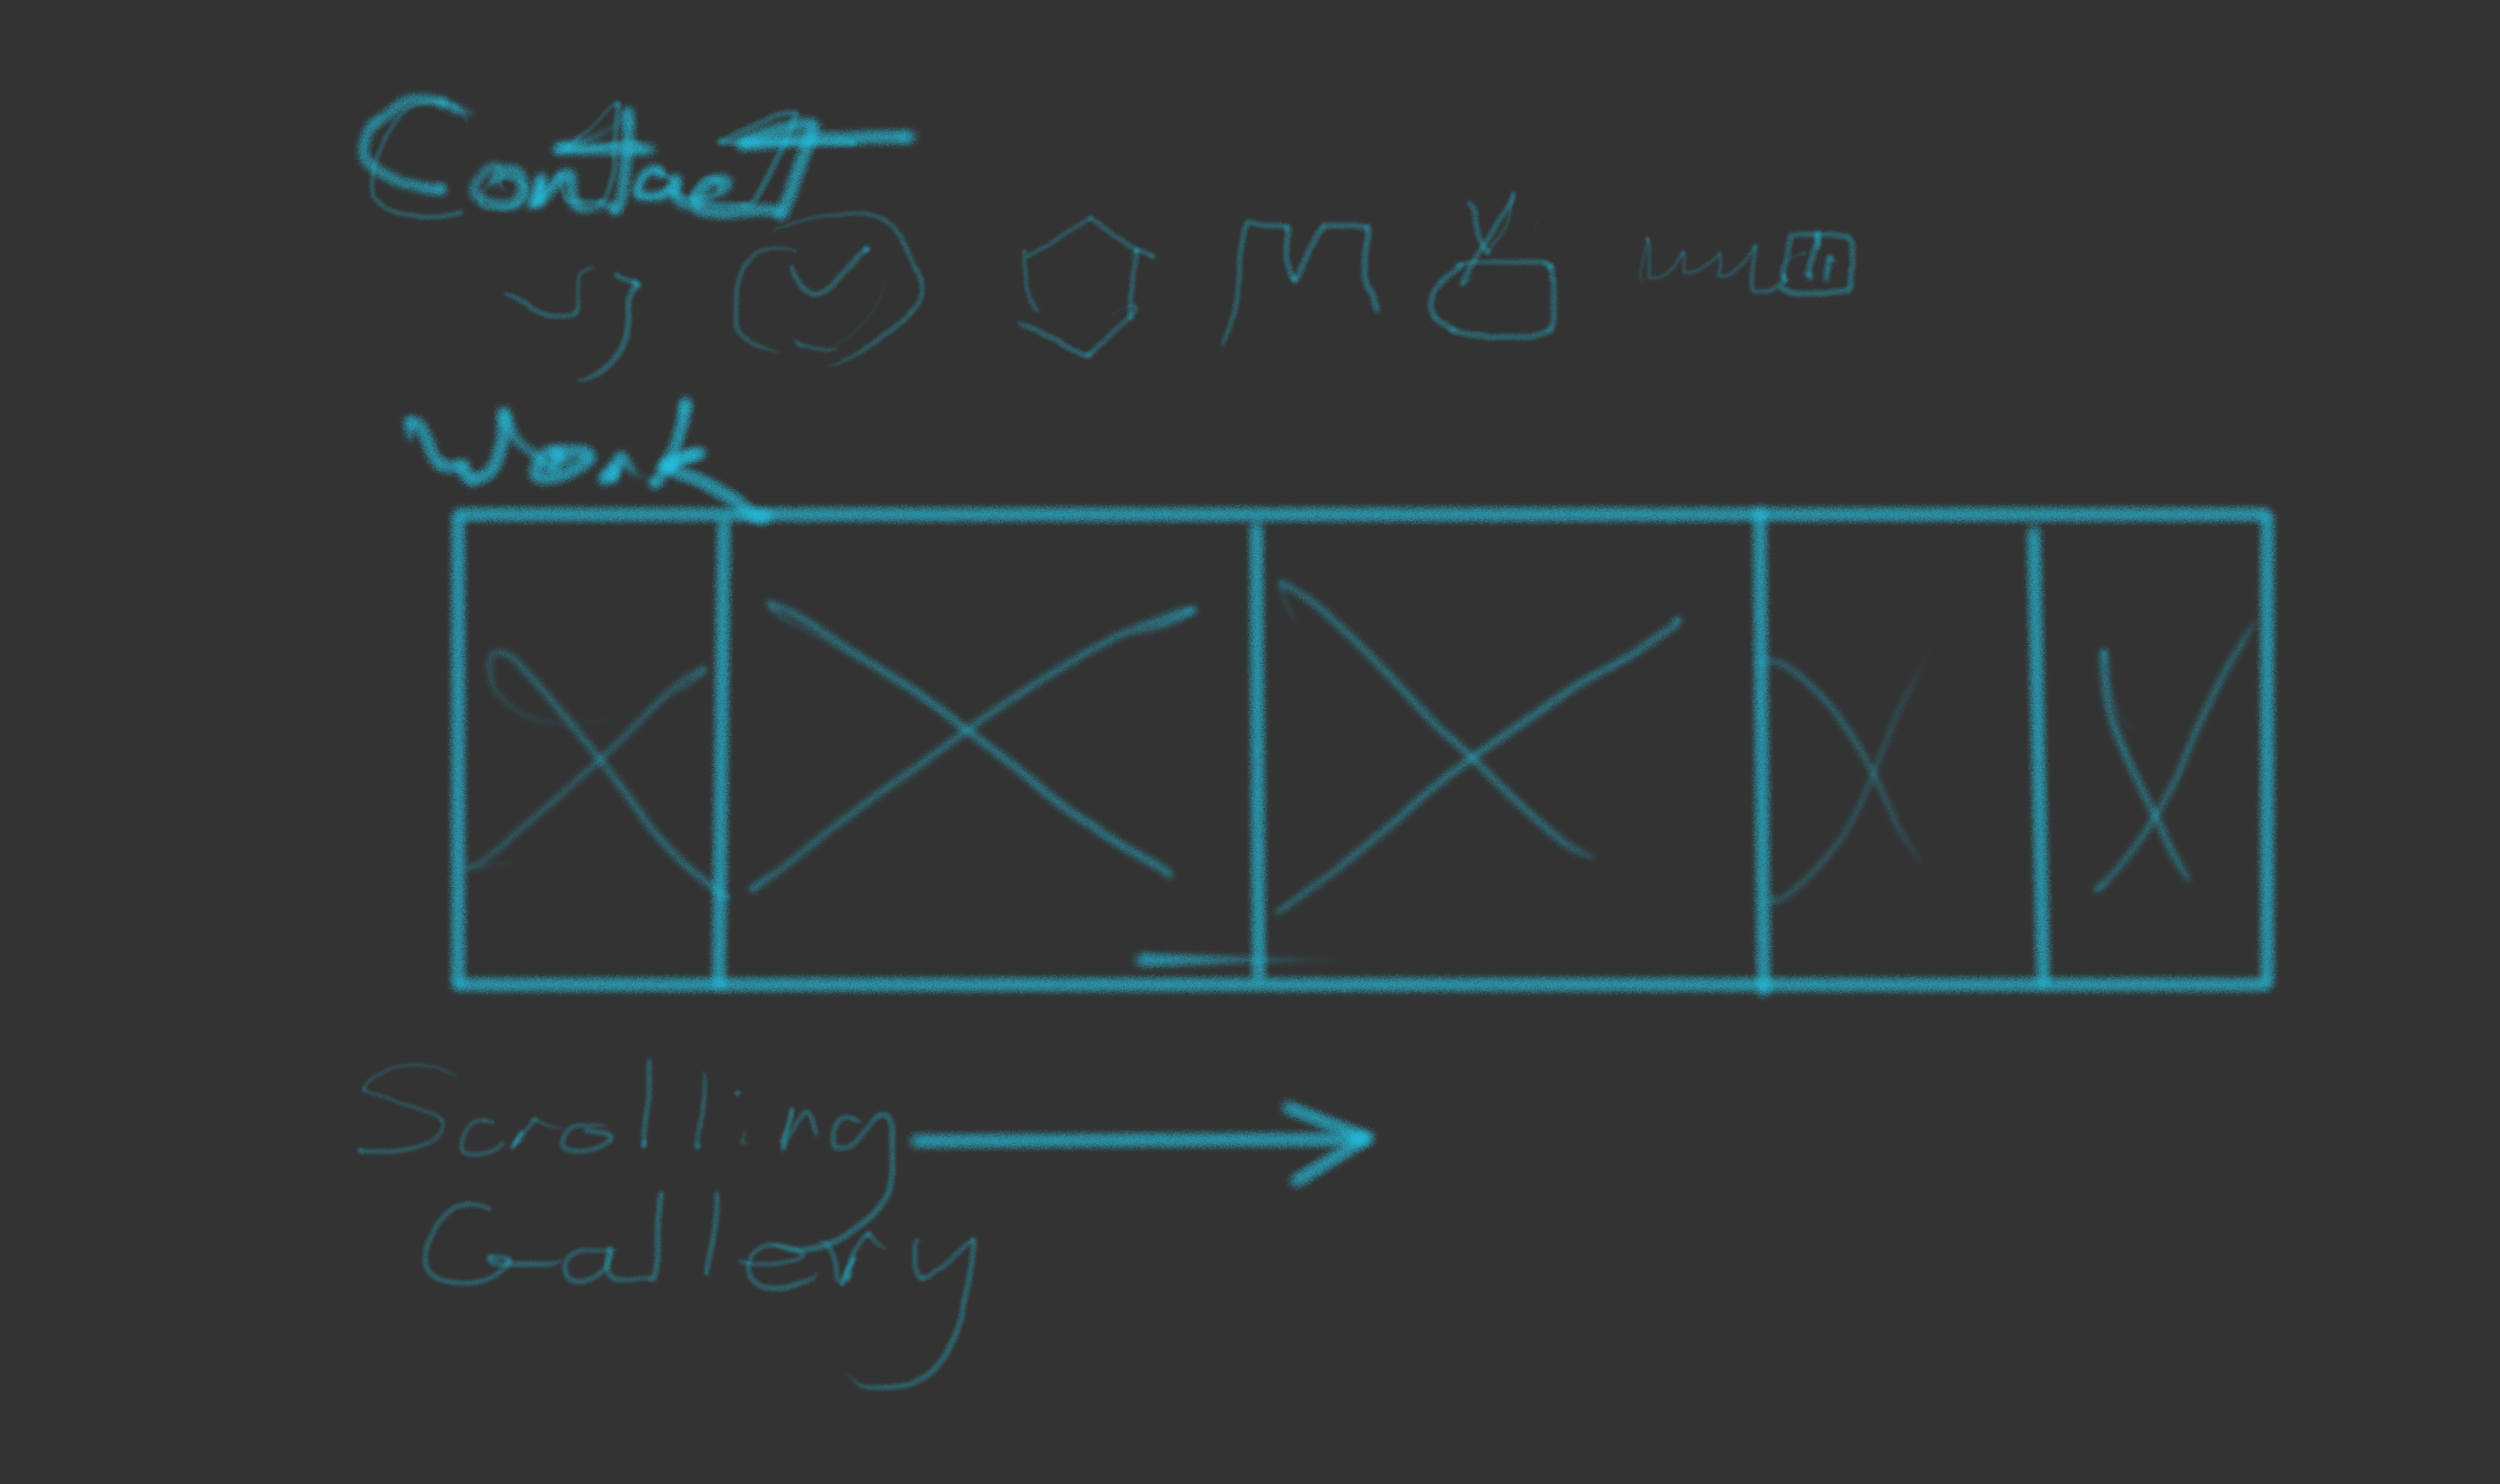 Contact
Work
Scrolling
Gallery